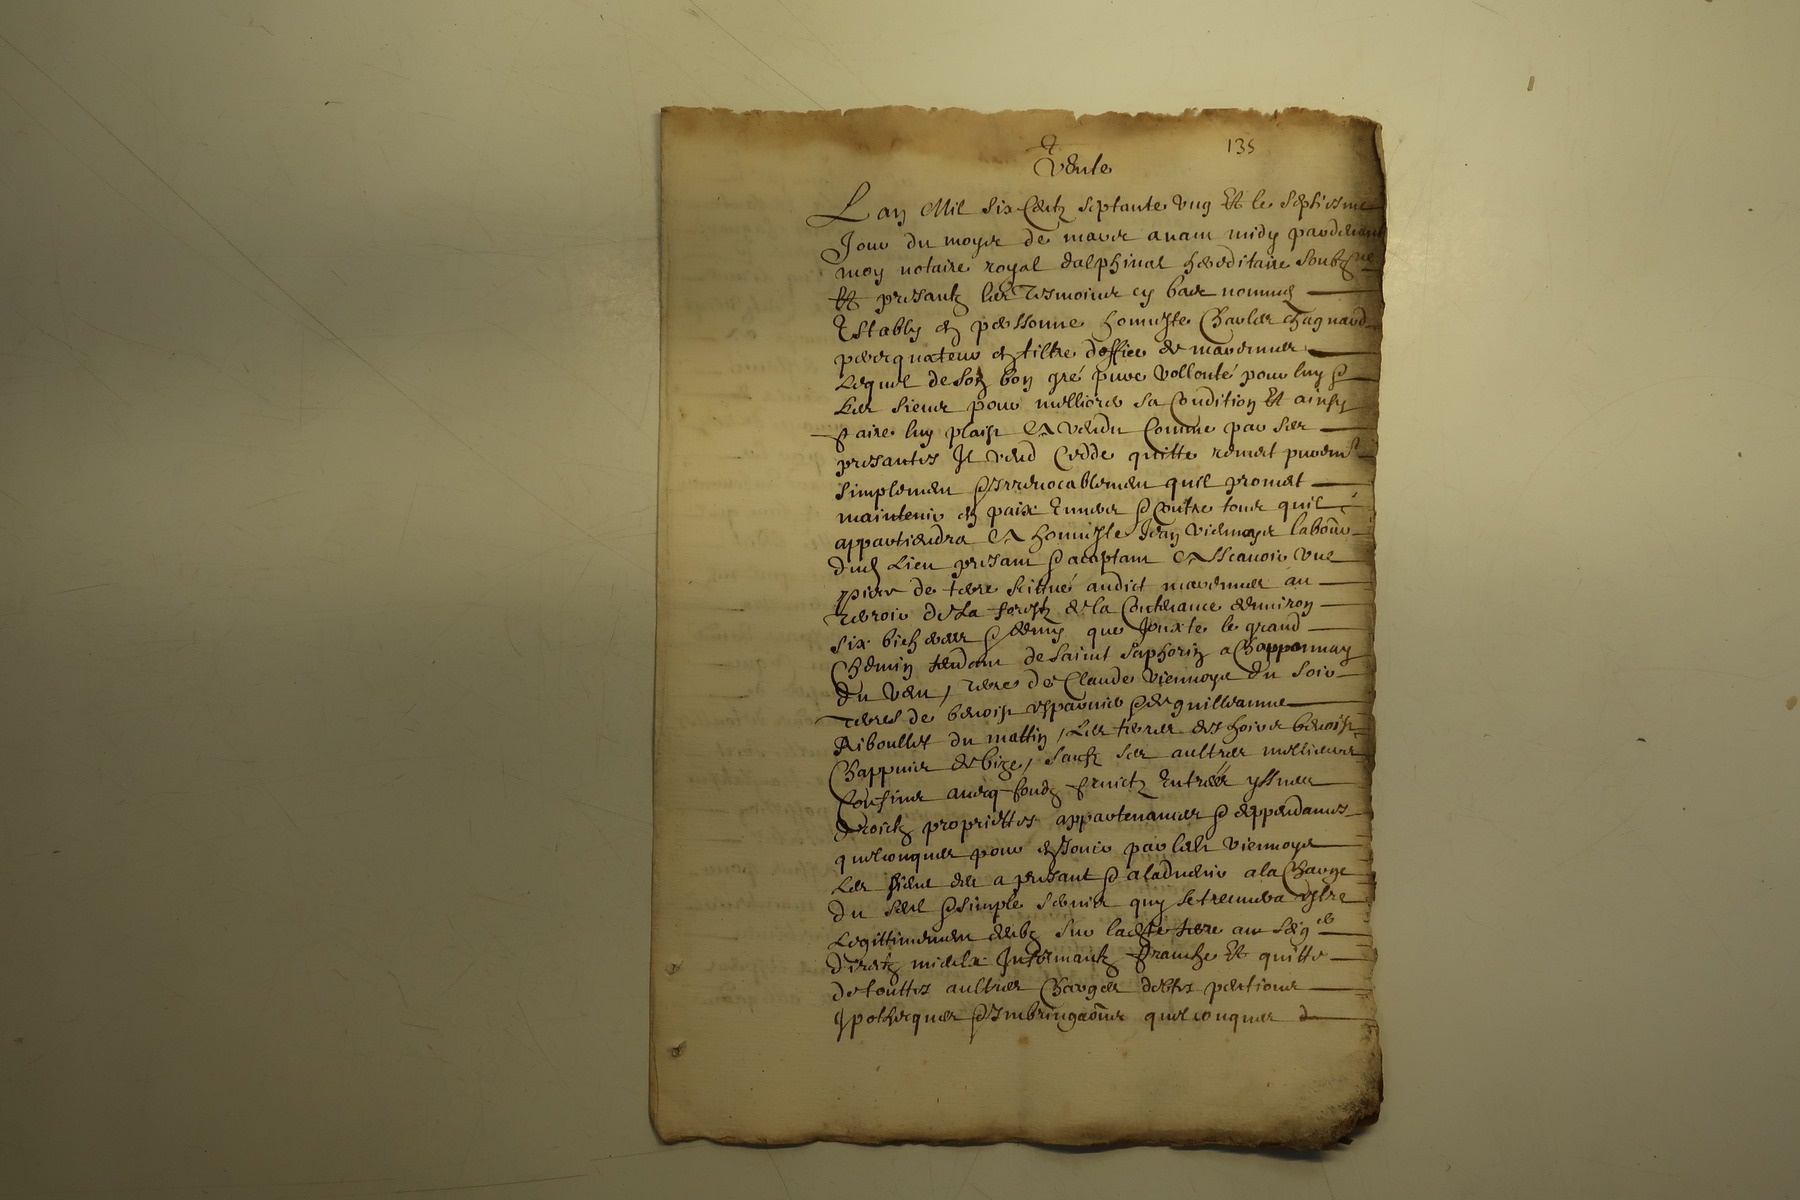 135
Vente
L an Mil six Centz septante ung Et le septiesme
Jour du moys de mars avant midy pardevant
moy notaire royal dalphinal hereditaire soubzne
Et presantz les tesmoins cy bas nommes
Establi en personne honneste Charles Chagnard
perequateur en tiltre d'office de marennes
Lequel de son bon gré pure vollonté pour luy &
Les siens pour melliorer sa Condition Et ainsy
faire luy plaist A vendu Comme par ses
presantes Il vend Cedde quitte remet purem^t
simplement & irrevocablement quil promet
maintenir en paix Envers & contre tous quil
appartiendra A honneste Jean Viennoys labour
dud Lieu presant & aceptant A Scavoir une
piece de terre scittué audict marennes au
terroir de la forest de la Contenance denviron
six bicherees & demy que Jouxte le grand
Chemin tendant de Saint Saphorin a Chapponnay
du vent, terre de Claude Viennoys du soir
terres de benoist & de guilleaume
Riboullet du mattin, Les terres des hoirs benoist
Chappuis de bize, sauf ses aultres mellieurs
Confins avecq fondz fruictz Entrées yssues
droictz propriettes appartenances & deppendances
quelconques pour en Jouir par led Viennoys
Les siens des a presant & aladvenir a la Charge
du seul & simple servis quy se treuvera estre
Legittimement deubz sur ladte terre au seig^r
direct Franche Et quitte
de touttes aultres Charges debtes pentions
Ipotheques & Imbringaõns quelconques